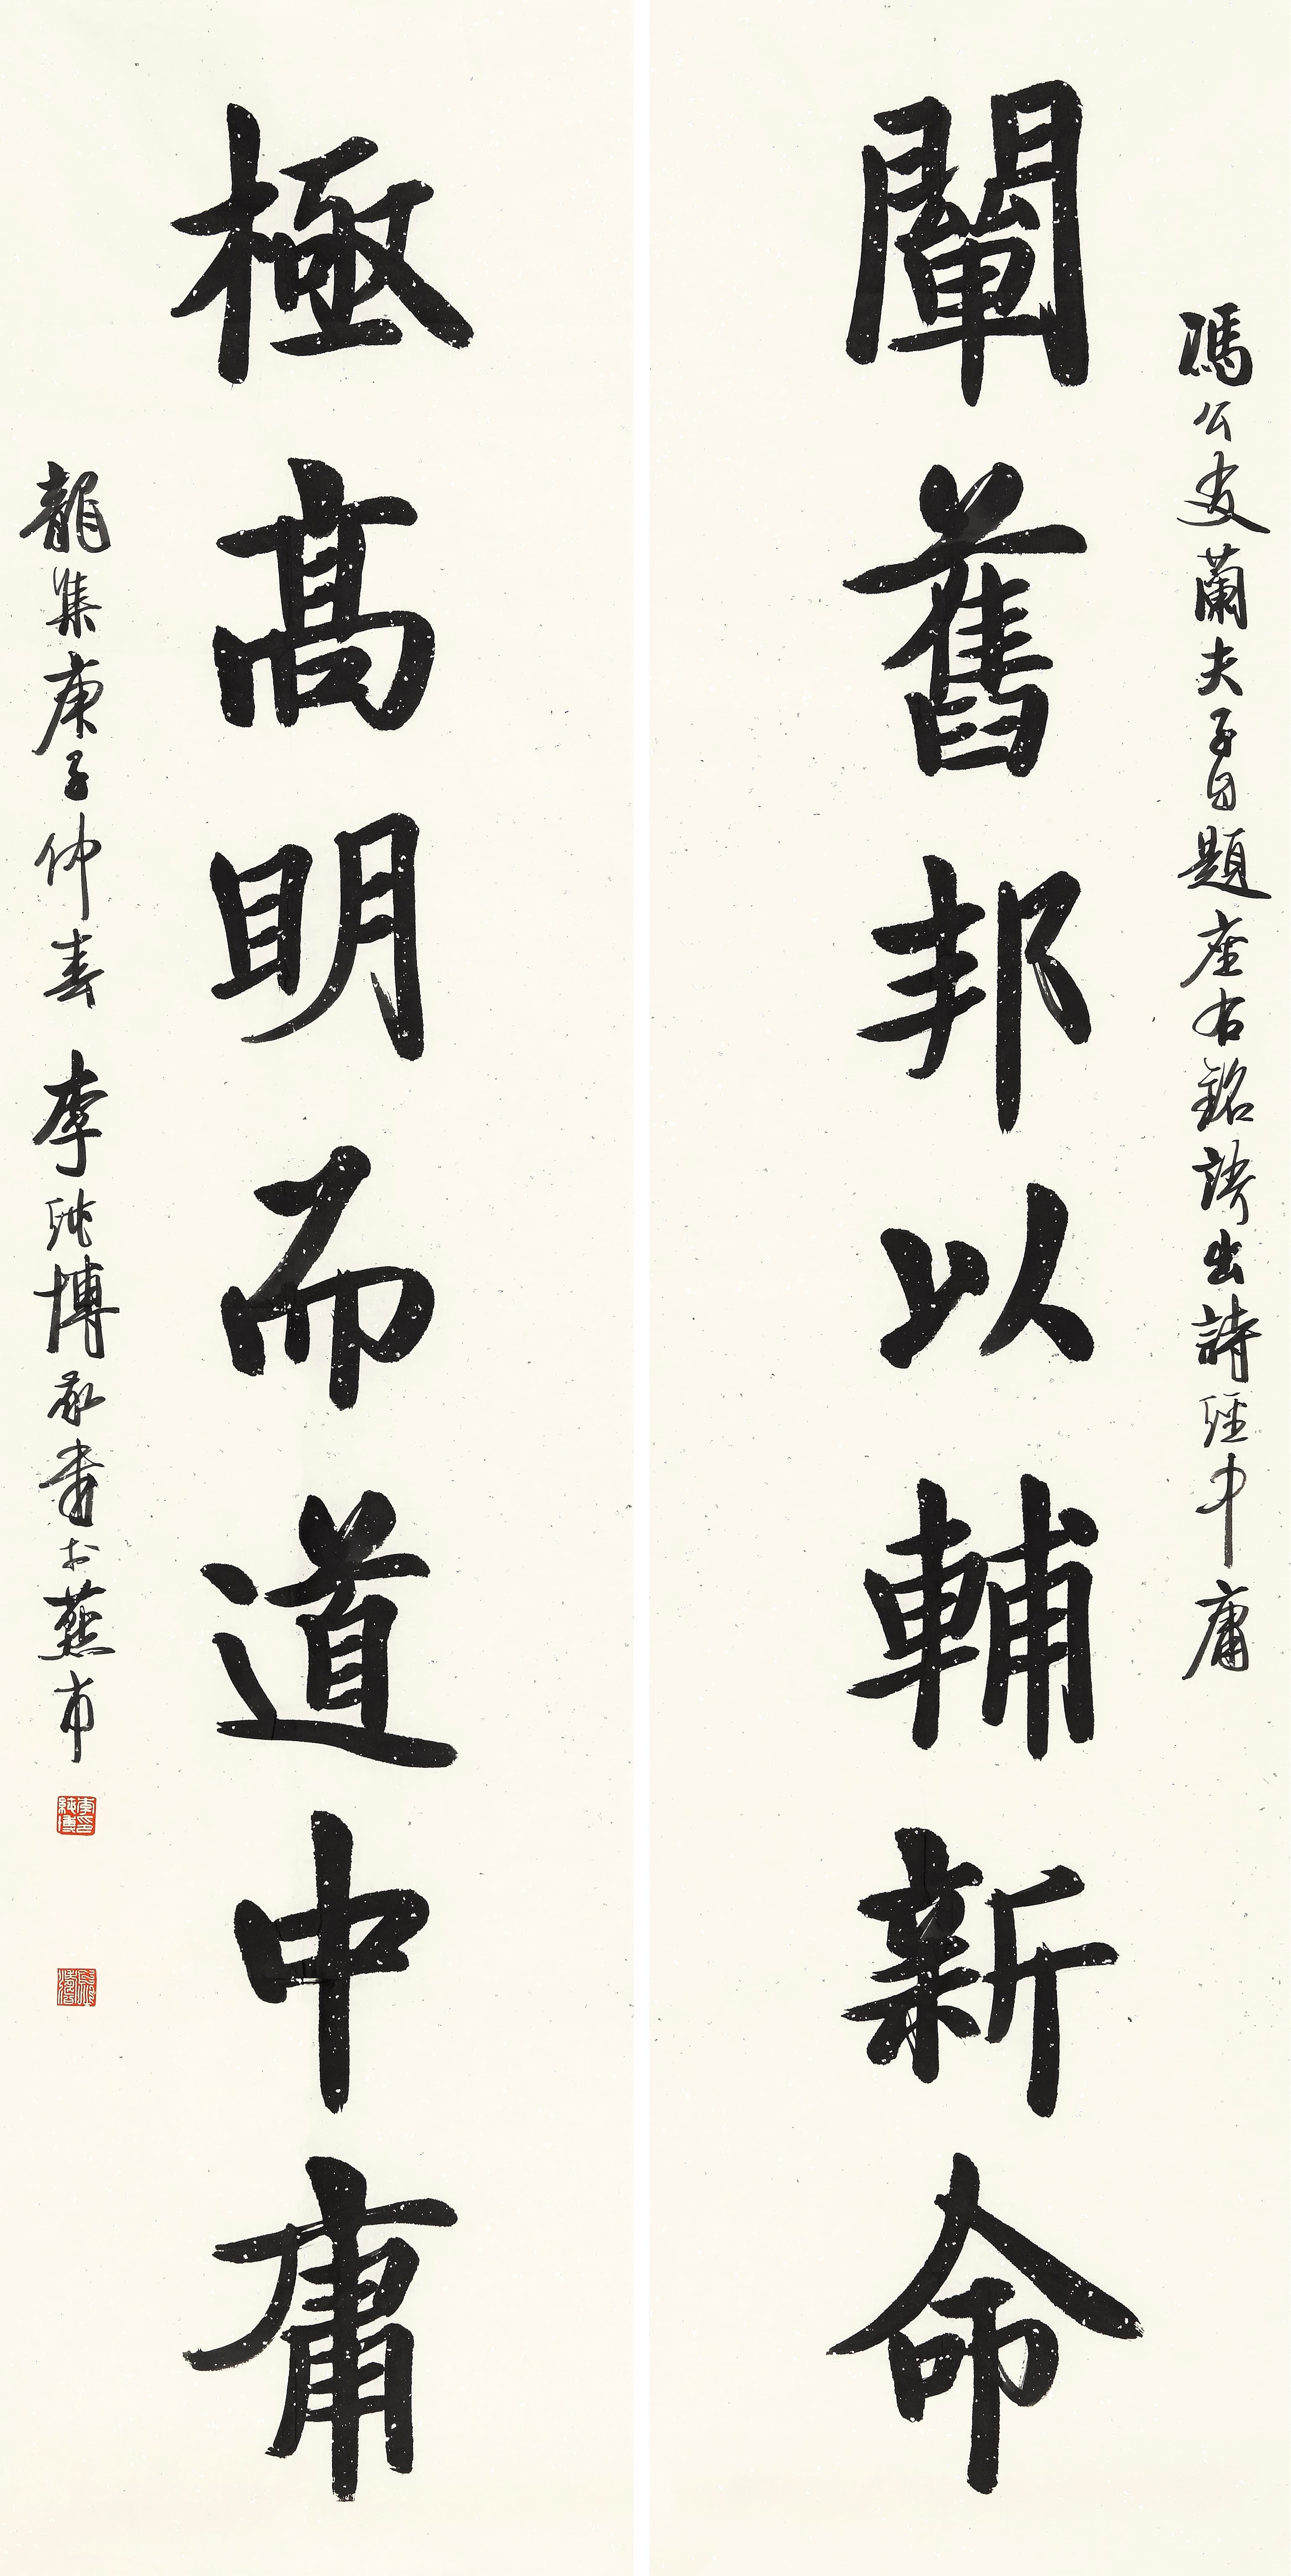 馮公友蘭夫子自題座右銘語出詩經中庸
闡舊邦以輔新命
極高明而道中庸
龍集庚子仲春 李純博敬書於燕市
李純博印